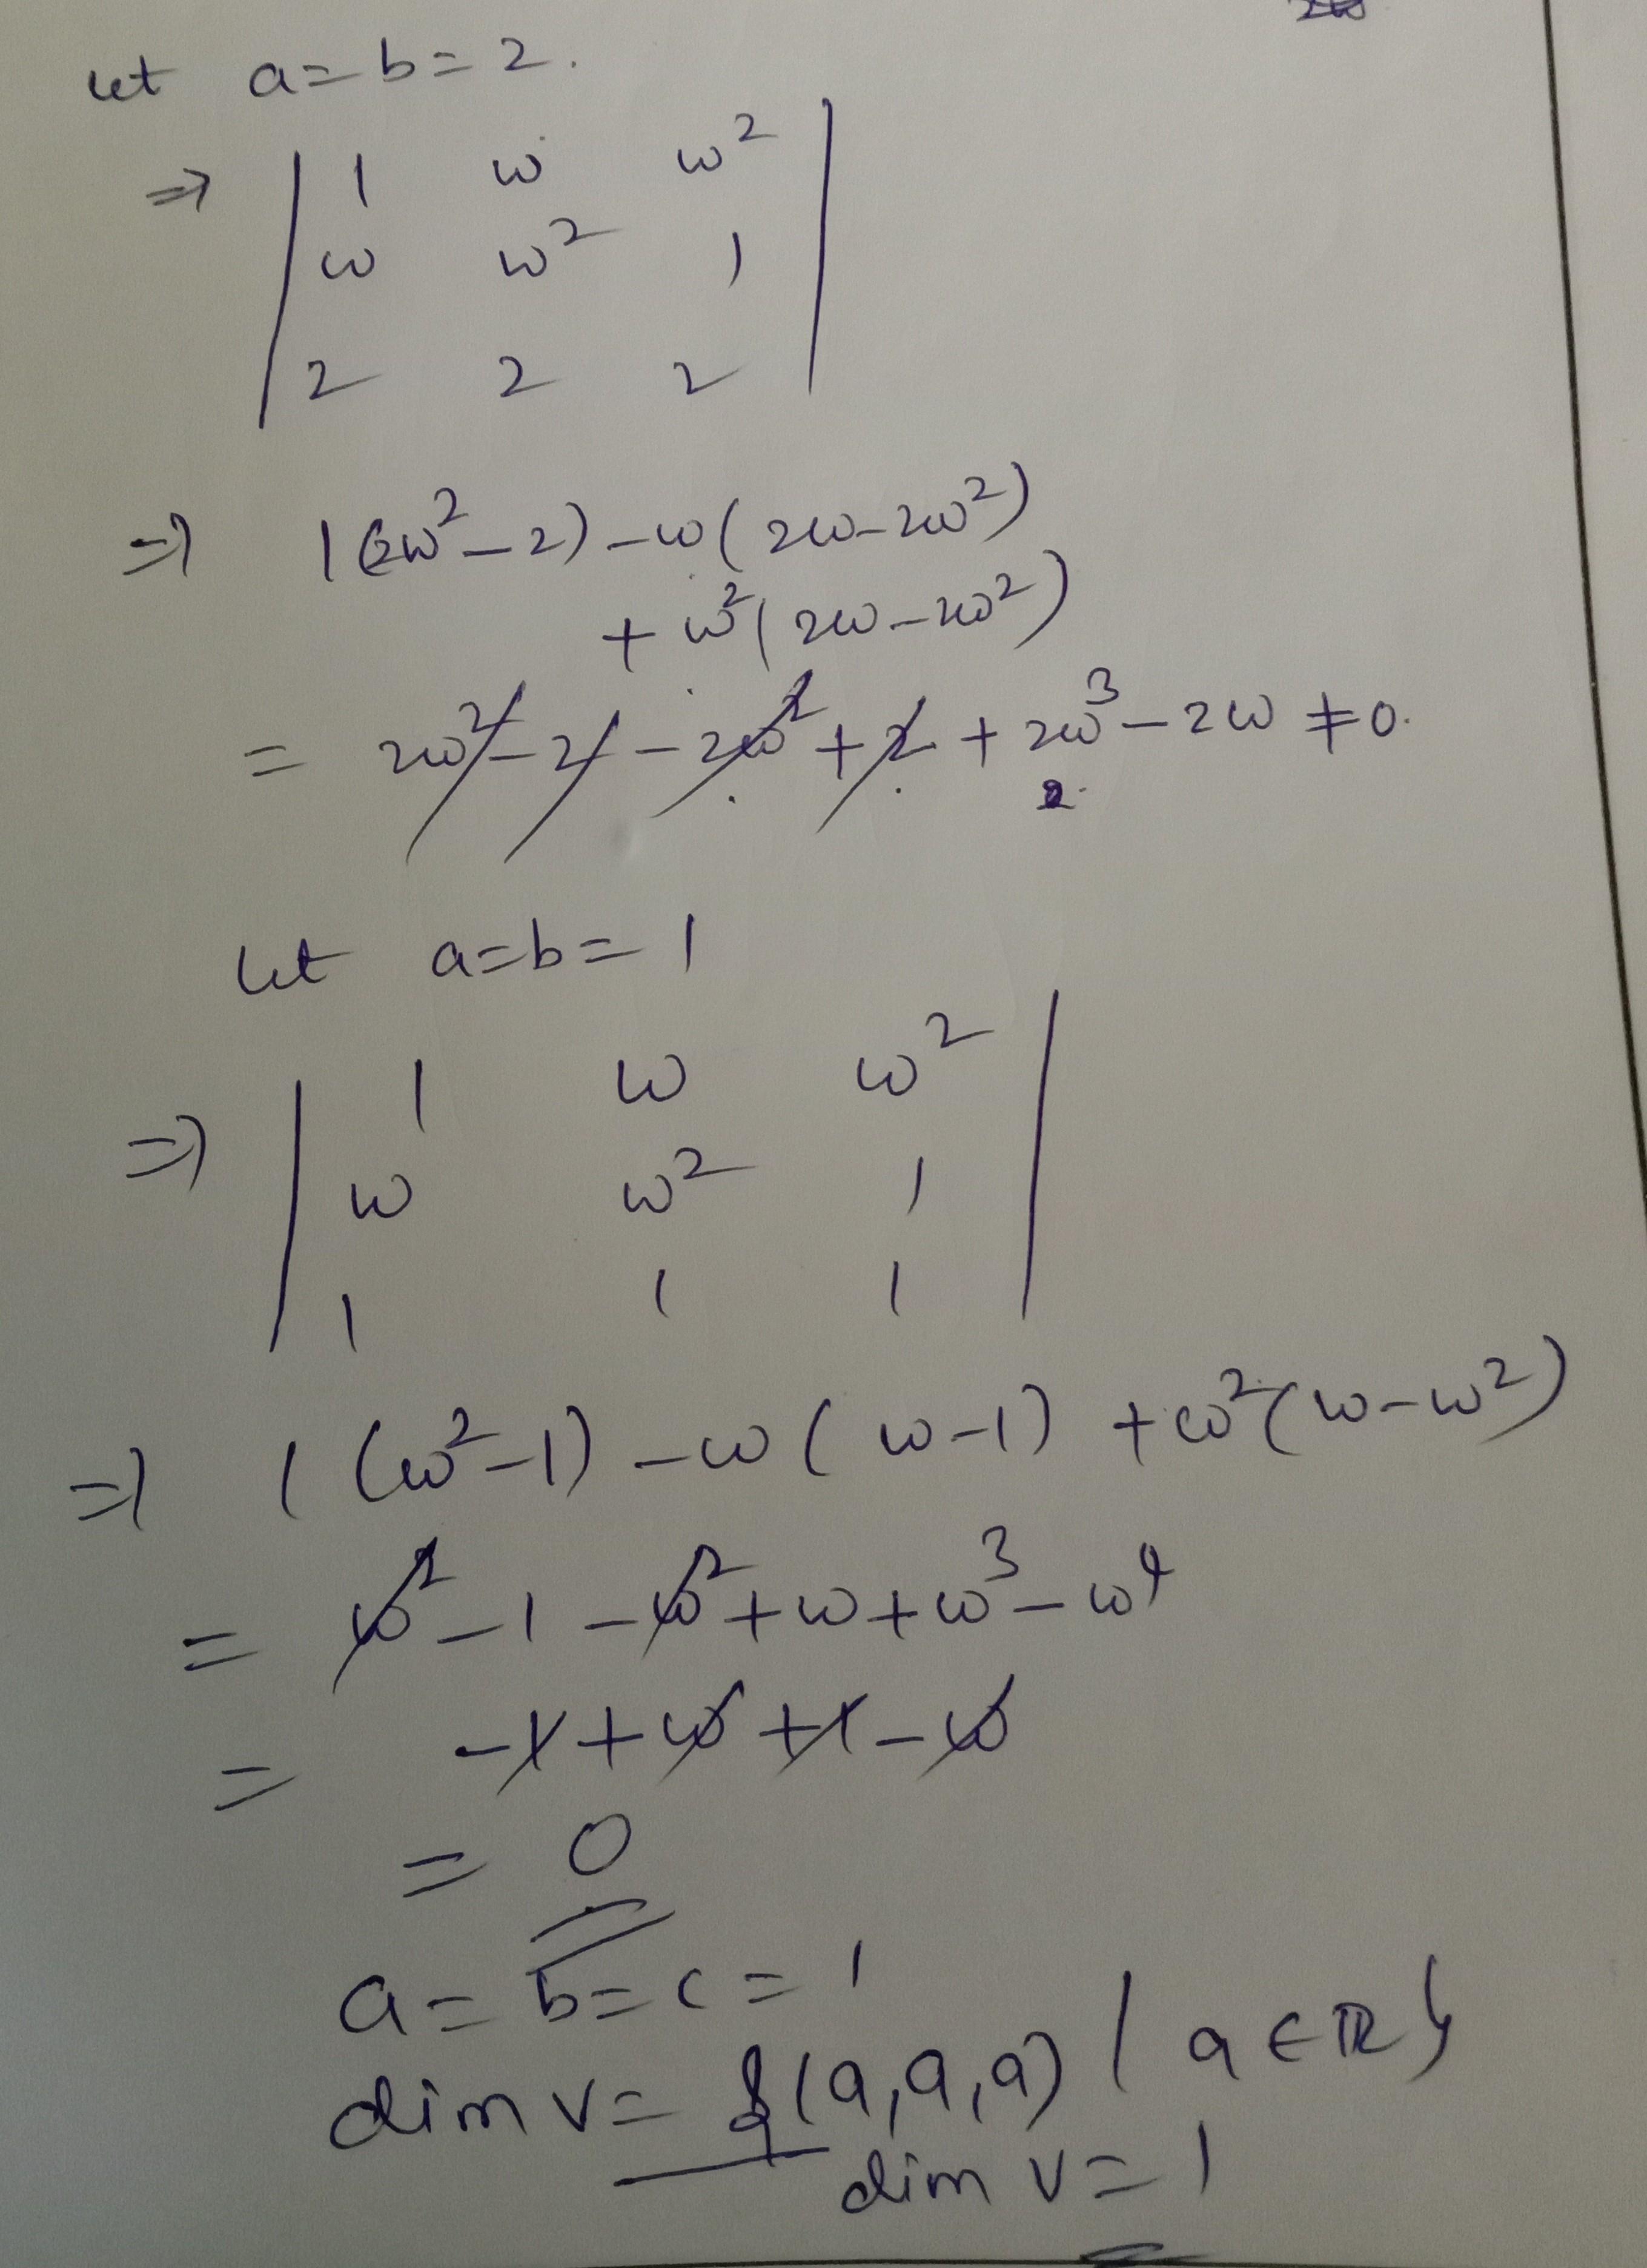 let a=b=2.
⇒ | 1 ω ω² |
| ω ω² 1 |
| 2 2 2 |
⇒ 1(2ω²-2)-ω(2ω-2ω²)
+ω²(2ω-2ω²)
= 2ω²-2-2ω²+2+2ω³-2ω≠0.
2.
let a=b=1
⇒ | 1 ω ω² |
| ω ω² 1 |
| 1 1 1 |
⇒ 1(ω²-1)-ω(ω-1)+ω²(ω-ω²)
= ω²-1-ω²+ω+ω³-ω⁴
= -1+ω+1-ω
= 0
a=b=c=1
dim V= {(a,a,a) / a∈ℝ}
dim V=1